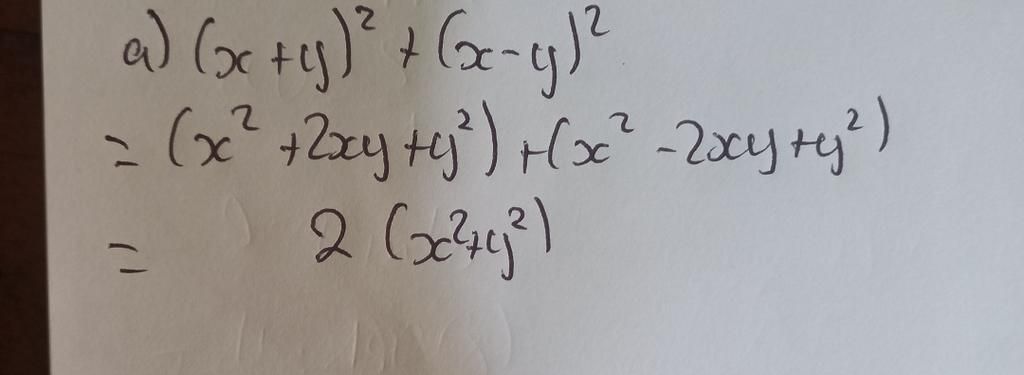 a) (x+y)² + (x-y)²
= (x² +2xy+y²) +(x² -2xy+y²)
= 2 (x²+y²)